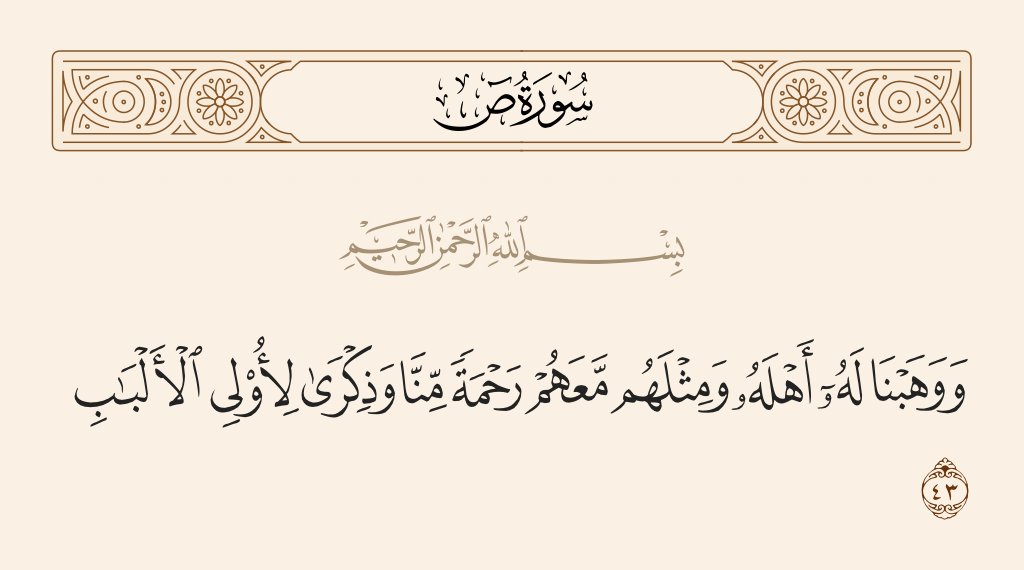 سُورَةُ صٓ
بِسْمِ ٱللَّهِ ٱلرَّحْمَٰنِ ٱلرَّحِيمِ
وَوَهَبْنَا لَهُۥٓ أَهْلَهُۥ وَمِثْلَهُم مَّعَهُمْ رَحْمَةً مِّنَّا وَذِكْرَىٰ لِأُو۟لِى ٱلْأَلْبَـٰبِ
٤٣